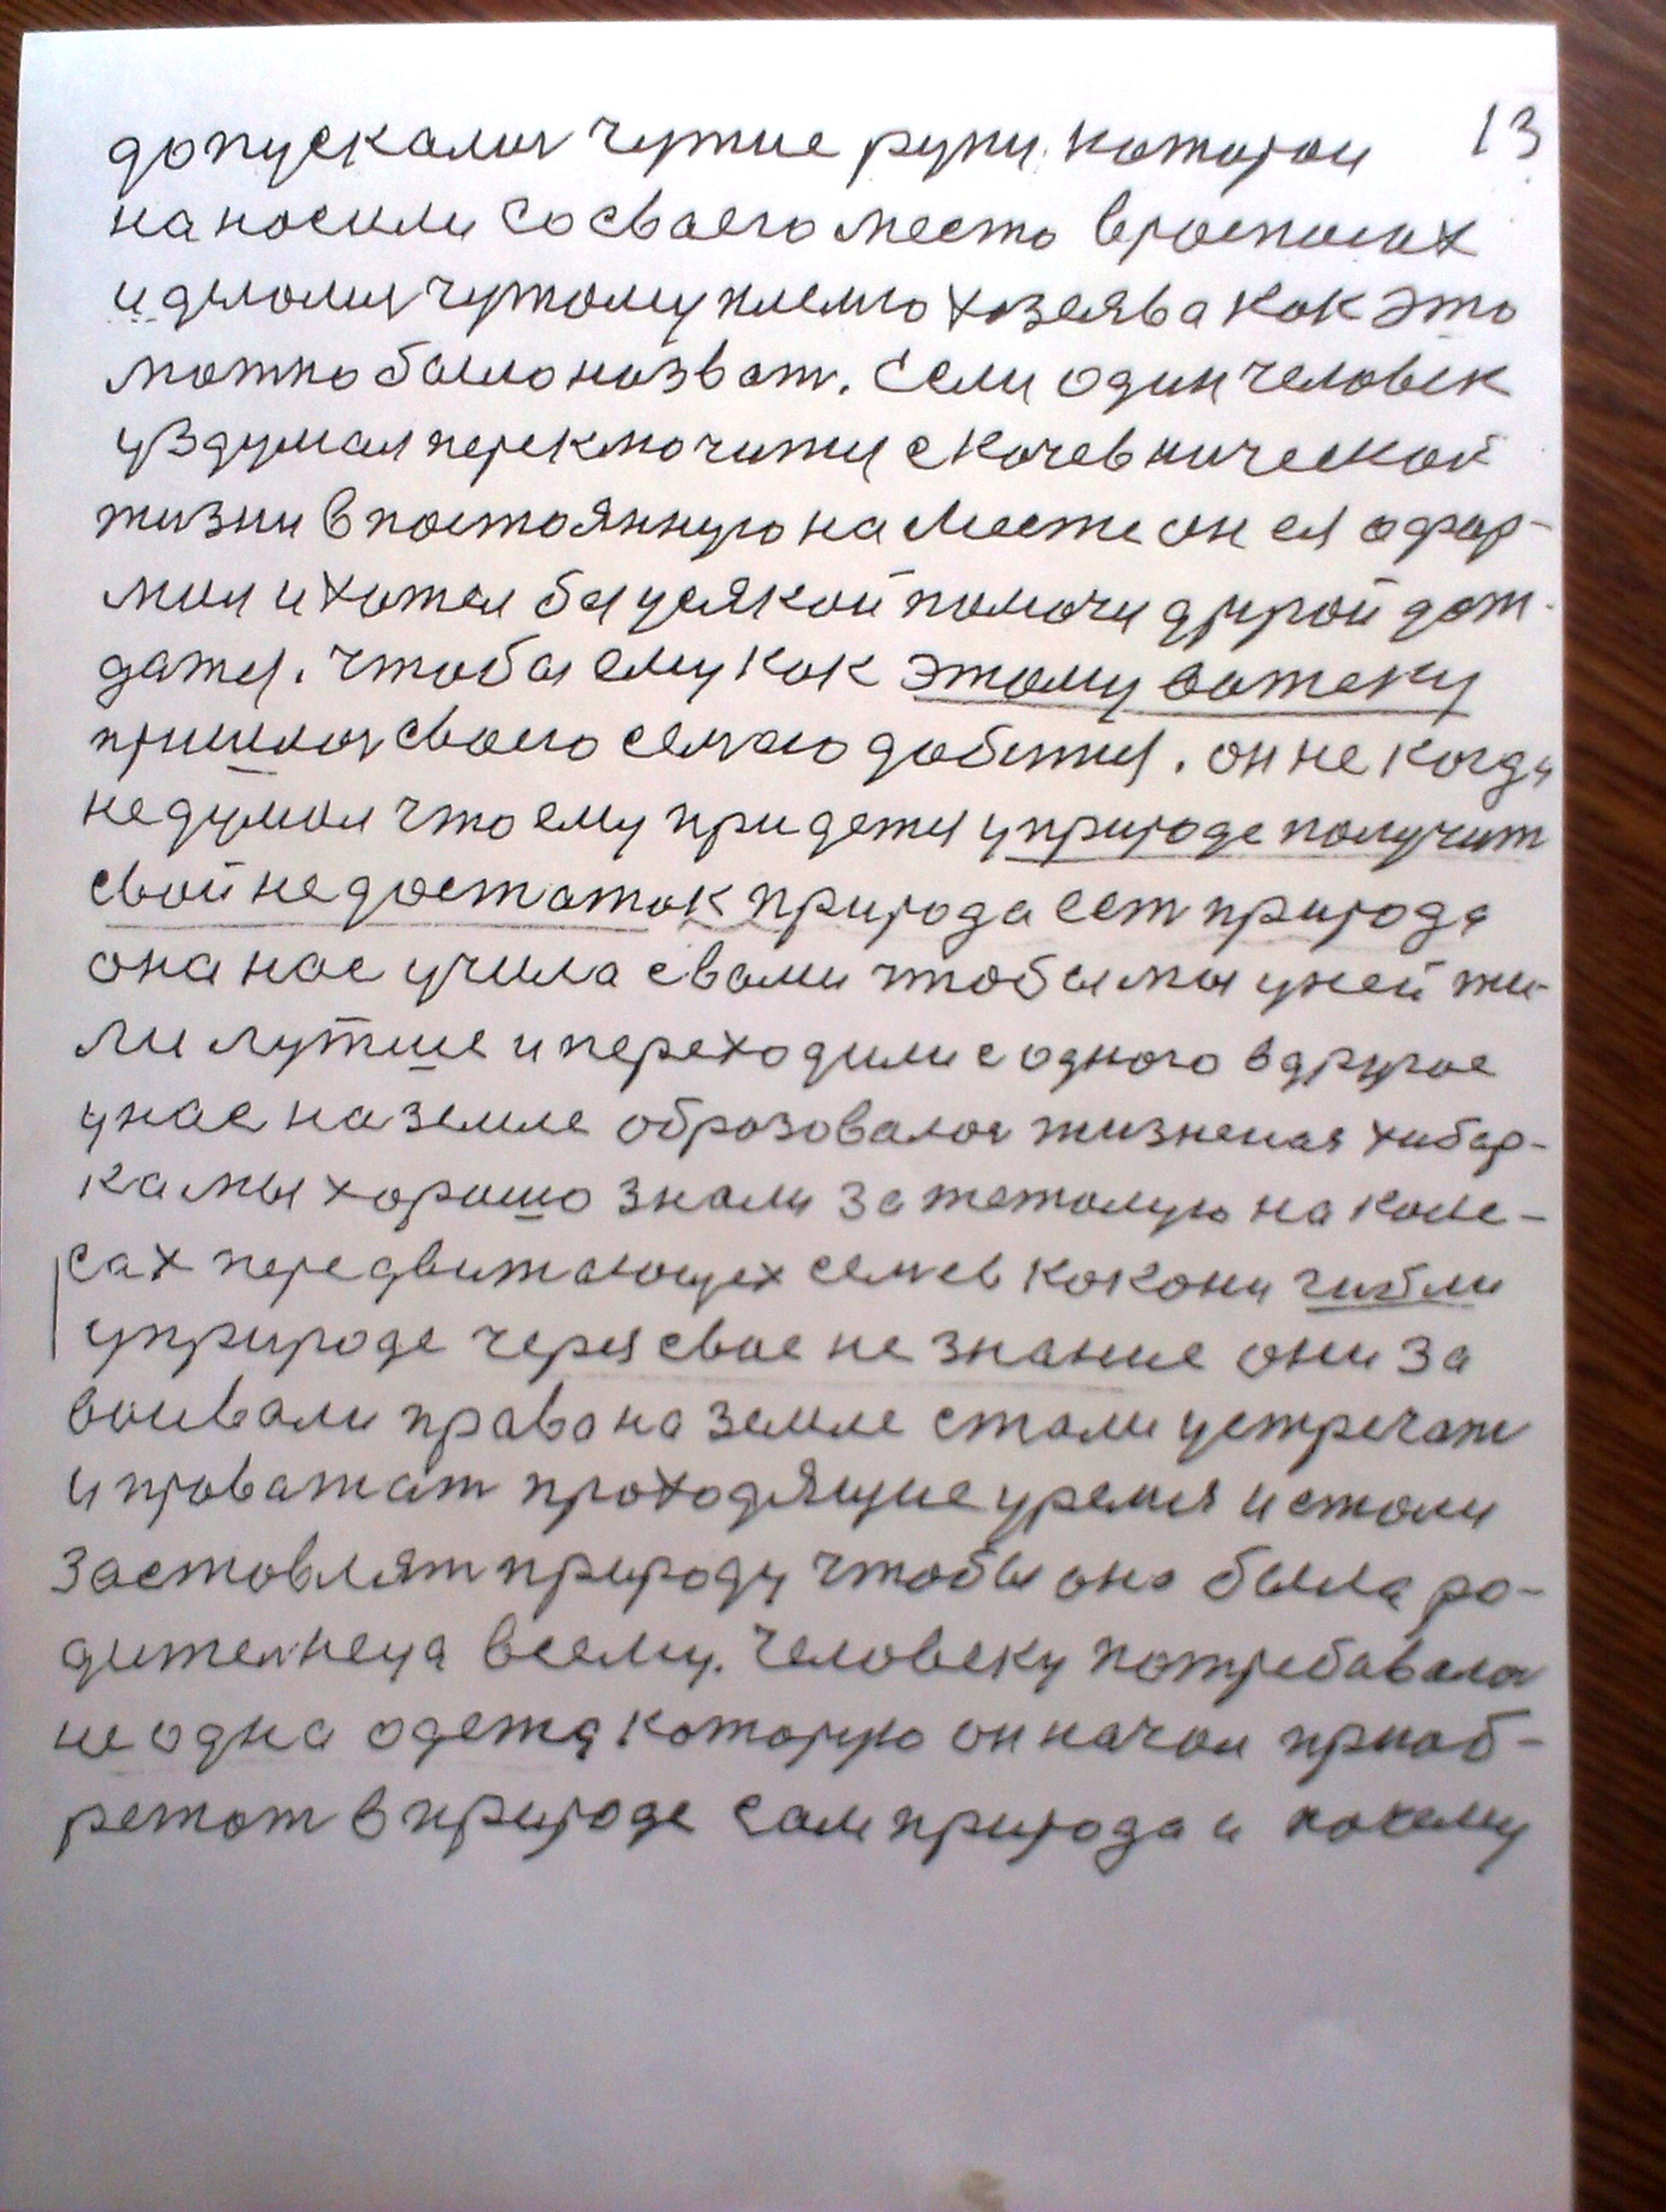 допускалися чужие руки. которои 13
наносили со своего место вросполох
и делолися чужому племю хозяева как это
можно было назват. Если один человек
уздумал переключится с кочевнической
жизни в постоянную на месте он ея офор-
мил и хотел бы усякой помочи другой дож-
датся. Чтобы ему как этому вотеку
пришлося свого семю добится. он не когда
не думал что ему придется у природе получит
свой недостаток природа ест природа
она нас учила с вами чтобы мы у ней жи-
ли лутше и переходили с одного в другое
у нас на земле образовалося жизненая хибар-
ка мы хорошо знали за тежолую на коле-
сах передвижающех семев как они гибли
у природе через свое не знание они за
воивали права на земле стали устречат
и проважат проходящие уремя и стали
заставлят природу чтобы она была ро-
дителнеца всему. Человеку потребавалося
не одна одежа которую он начал приоб-
ретат в природе сам природа и почему